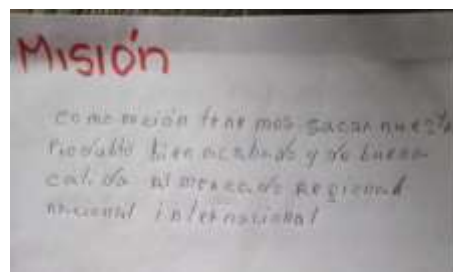 Misión
como meción tenemos sacar nuestro
Producto bien acabado y de buena
calida al mercado Regional
nacional internacional